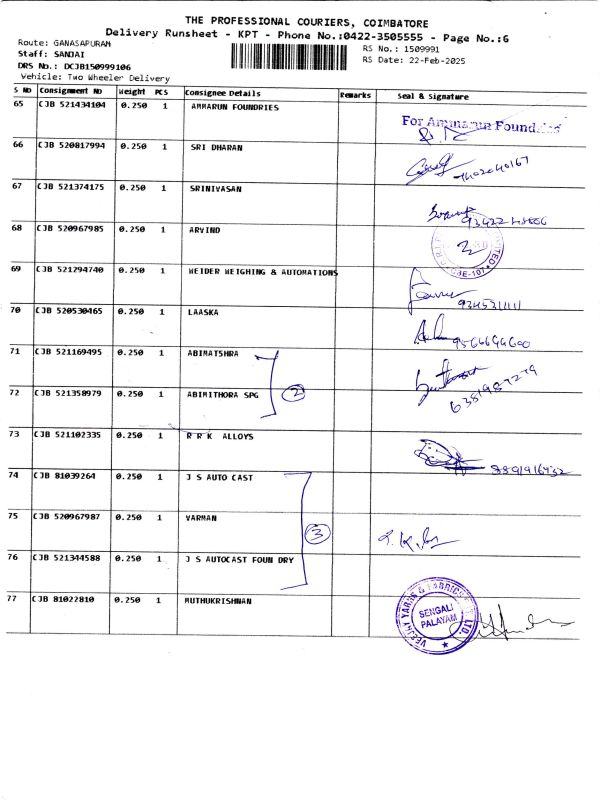 THE PROFESSIONAL COURIERS, COIMBATORE
Delivery Runsheet - KPT - Phone No.:0422-3505555 - Page No.:6
Route: GANASAPURAM
RS No.: 1509991
Staff: SANJAI
RS Date: 22-Feb-2025
DRS No.: DCJB150999106
Vehicle: Two Wheeler Delivery
S No Consignment No Weight PCS Consignee Details Remarks Seal & Signature
65 CJB 521434104 0.250 1 AMMARUN FOUNDRIES
For Ammarun Foundries
66 CJB 520817994 0.250 1 SRI DHARAN
67 CJB 521374175 0.250 1 SRINIVASAN
68 CJB 520967985 0.250 1 ARVIND
69 CJB 521294740 0.250 1 WEIDER WEIGHING & AUTOMATIONS
70 CJB 520530465 1 LAASKA
0.250
9566644600
71 CJB 521169495 0.250 1 ABIMATSHRA
2
72 CJB 521358979 0.250 1 ABIMITHORA SPG
6381987279
73 CJB 521102335 0.250 1 R R K ALLOYS
74 CJB 81039264 0.250 1 J S AUTO CAST
75 CJB 520967987 0.250 1 VARMAN
3
76 CJB 521344588 0.250 1 J S AUTOCAST FOUN DRY
77 CJB 81022810 0.250 1 MUTHUKRISHNAN
SENGALI
PALAYAM